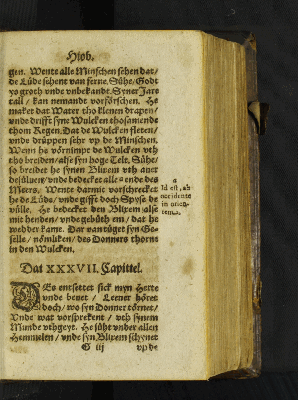 Hiob.
gen. Wente alle Minschen sehen dat/
de Lüde sehent van ferne. Sühe/ Godt
ys groth vnde vnbekandt. Syner Jare
tall / kan nemandt vorförschen. He
maket dat Water tho klenen drapen/
vnde drifft syne Wulcken thosamende
thom Regen. Dat de Wulcken fleten/
vnde drüppen sehr vp de Minschen.
Wenn he vörnimpt de Wulcken vth
tho breiden/ alse syn hoge Telt. Sühe/
so breidet he synen Blixem vth auer
desüluen/ vnde bedecket alle ende des
Meers. Wente darmit vorschrecket
he de Lüde/ vnde gifft doch Spyse de
vülle. He bedecket den Blixem alse
mit henden/ vnde gebüth em/ dat he
wedder kame. Dar van tüget syn Ge-
selle / nömliken/ des Donners thorne
in den Wulcken.
a
Id est, ab
occidente
in orien-
tem.
Dat XXXVII. Capittel.
DEs entsettet sick myn Herte
vnde beuet / Leener höret
doch/ wo syn Donner törnet/
Vnde wat vorsprekent / vth synem
Munde vthgeyt. He süht vnder allen
Hemmelen / vnde syn Blixem schynet
G iij
vp de